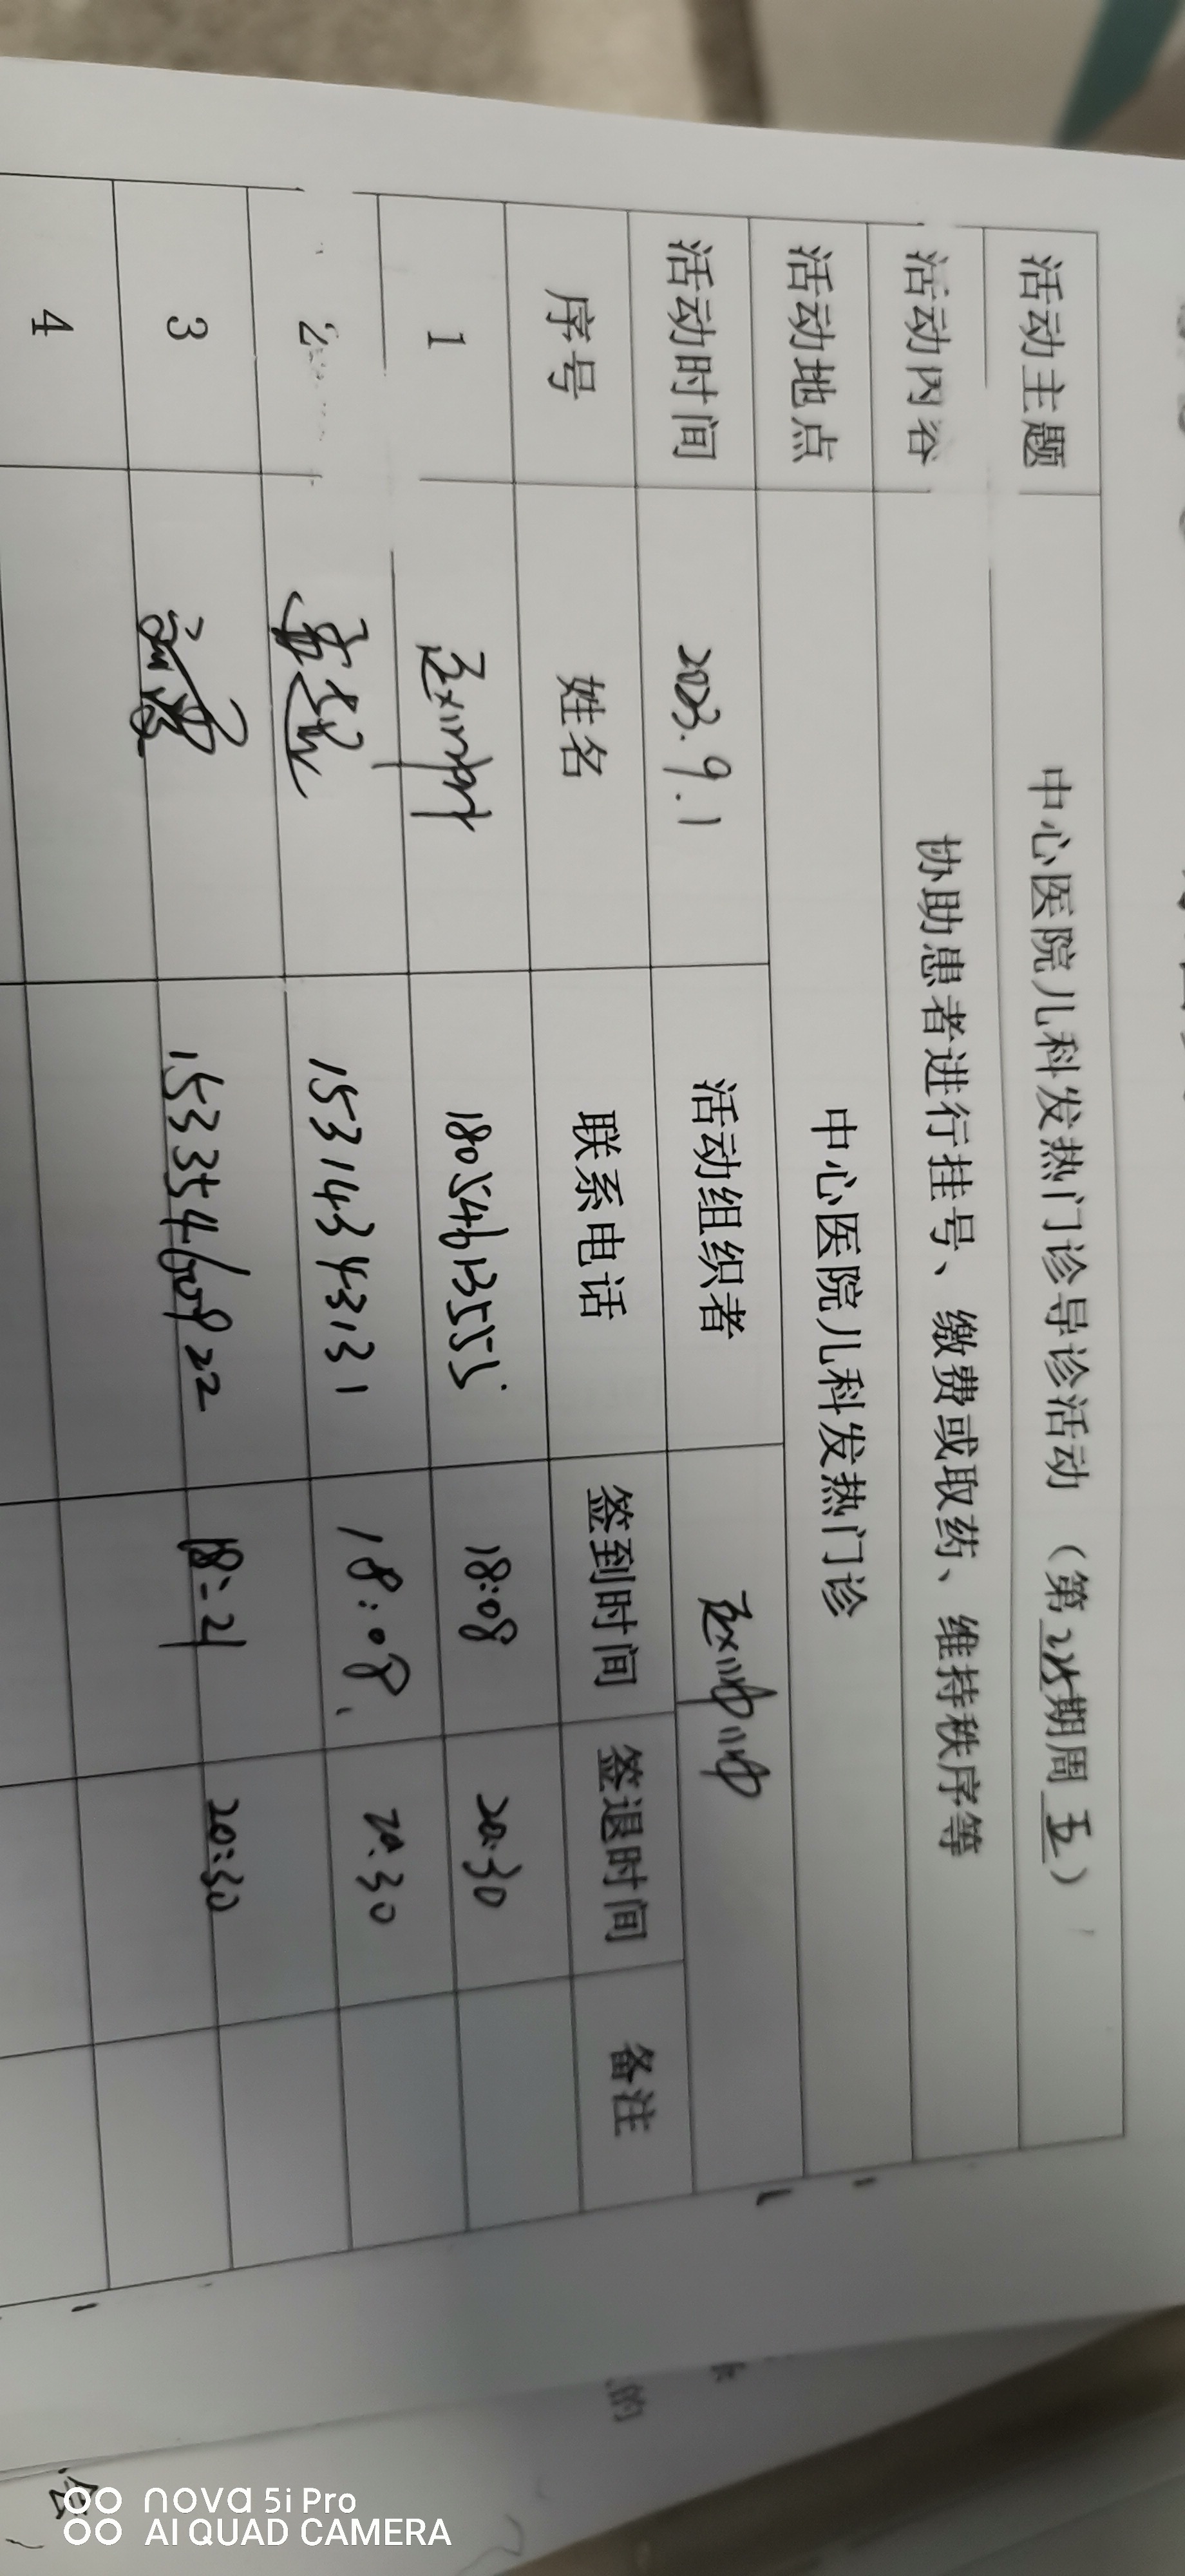 活动主题 中心医院儿科发热门诊导诊活动（第 期周五）
活动内容 协助患者进行挂号、缴费或取药、维持秩序等
活动地点 中心医院儿科发热门诊
活动时间 2023.9.1 活动组织者
序号 姓名 联系电话 签到时间 签退时间 备注
1 18054613555 18:08 20:30
2 15314343131 18:08 20:30
3 15335460922 18:21 20:30
4
的
会
nova 5i Pro
AI QUAD CAMERA